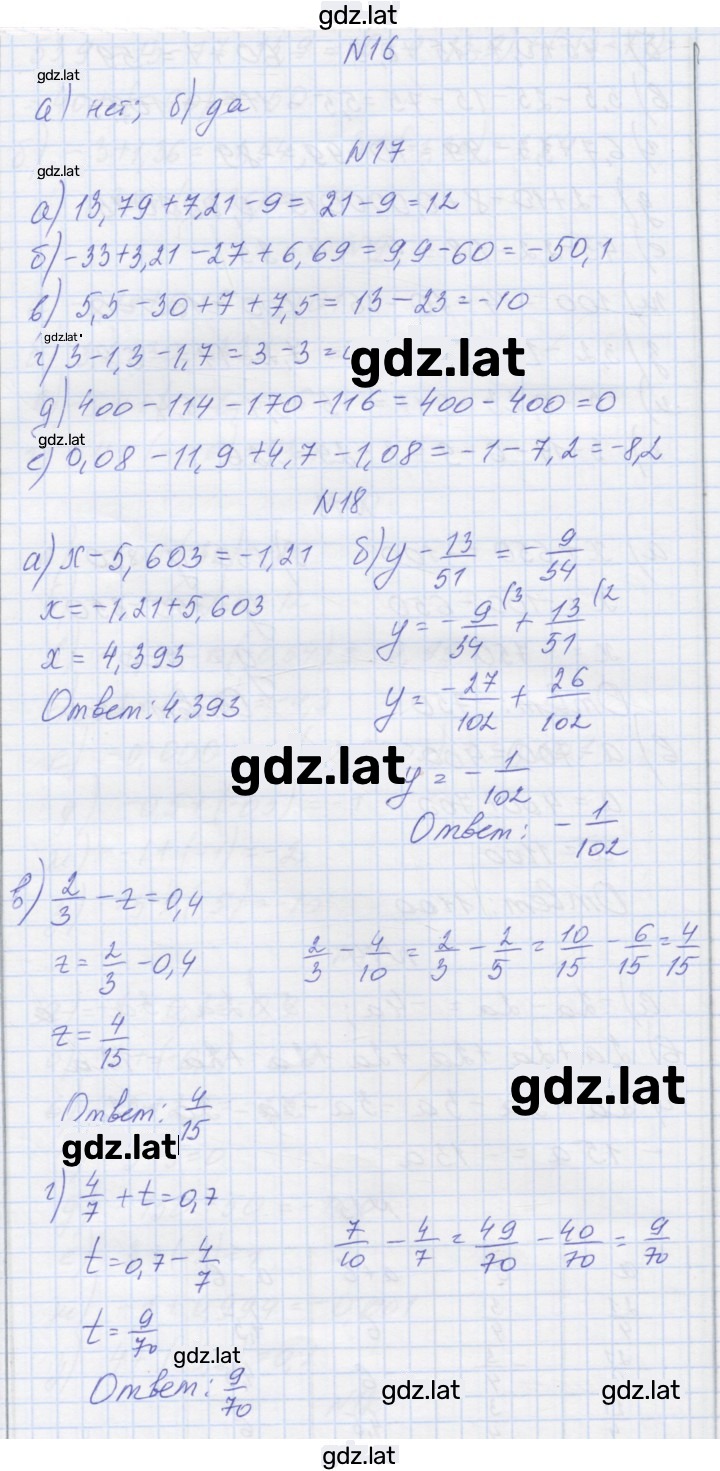 gdz.lat
N16
gdz.lat
а) нет; б) да
N17
gdz.lat
а) 13,79 + 7,21 - 9 = 21 - 9 = 12
б) -33 + 3,21 - 27 + 6,69 = 9,9 - 60 = -50,1
в) 5,5 - 30 + 7 + 7,5 = 13 - 23 = -10
gdz.lat
г) 3 - 1,3 - 1,7 = 3 - 3 =
gdz.lat
д) 400 - 114 - 170 - 116 = 400 - 400 = 0
gdz.lat
е) 0,08 - 11,9 + 4,7 - 1,08 = -1 - 7,2 = -8,2
N18
а) x - 5,603 = -1,21
x = -1,21 + 5,603
x = 4,393
Ответ: 4,393
б) y - 13/51 = -9/34
y = -9/34 (3 + 13/51 (2
y = -27/102 + 26/102
gdz.lat
y = -1/102
Ответ: -1/102
в) 2/3 - z = 0,4
z = 2/3 - 0,4
2/3 - 4/10 = 2/3 - 2/5 = 10/15 - 6/15 = 4/15
z = 4/15
gdz.lat
Ответ: 4/15
gdz.lat
г) 4/7 + t = 0,7
t = 0,7 - 4/7
7/10 - 4/7 = 49/70 - 40/70 = 9/70
t = 9/70
gdz.lat
Ответ: 9/70
gdz.lat
gdz.lat
gdz.lat